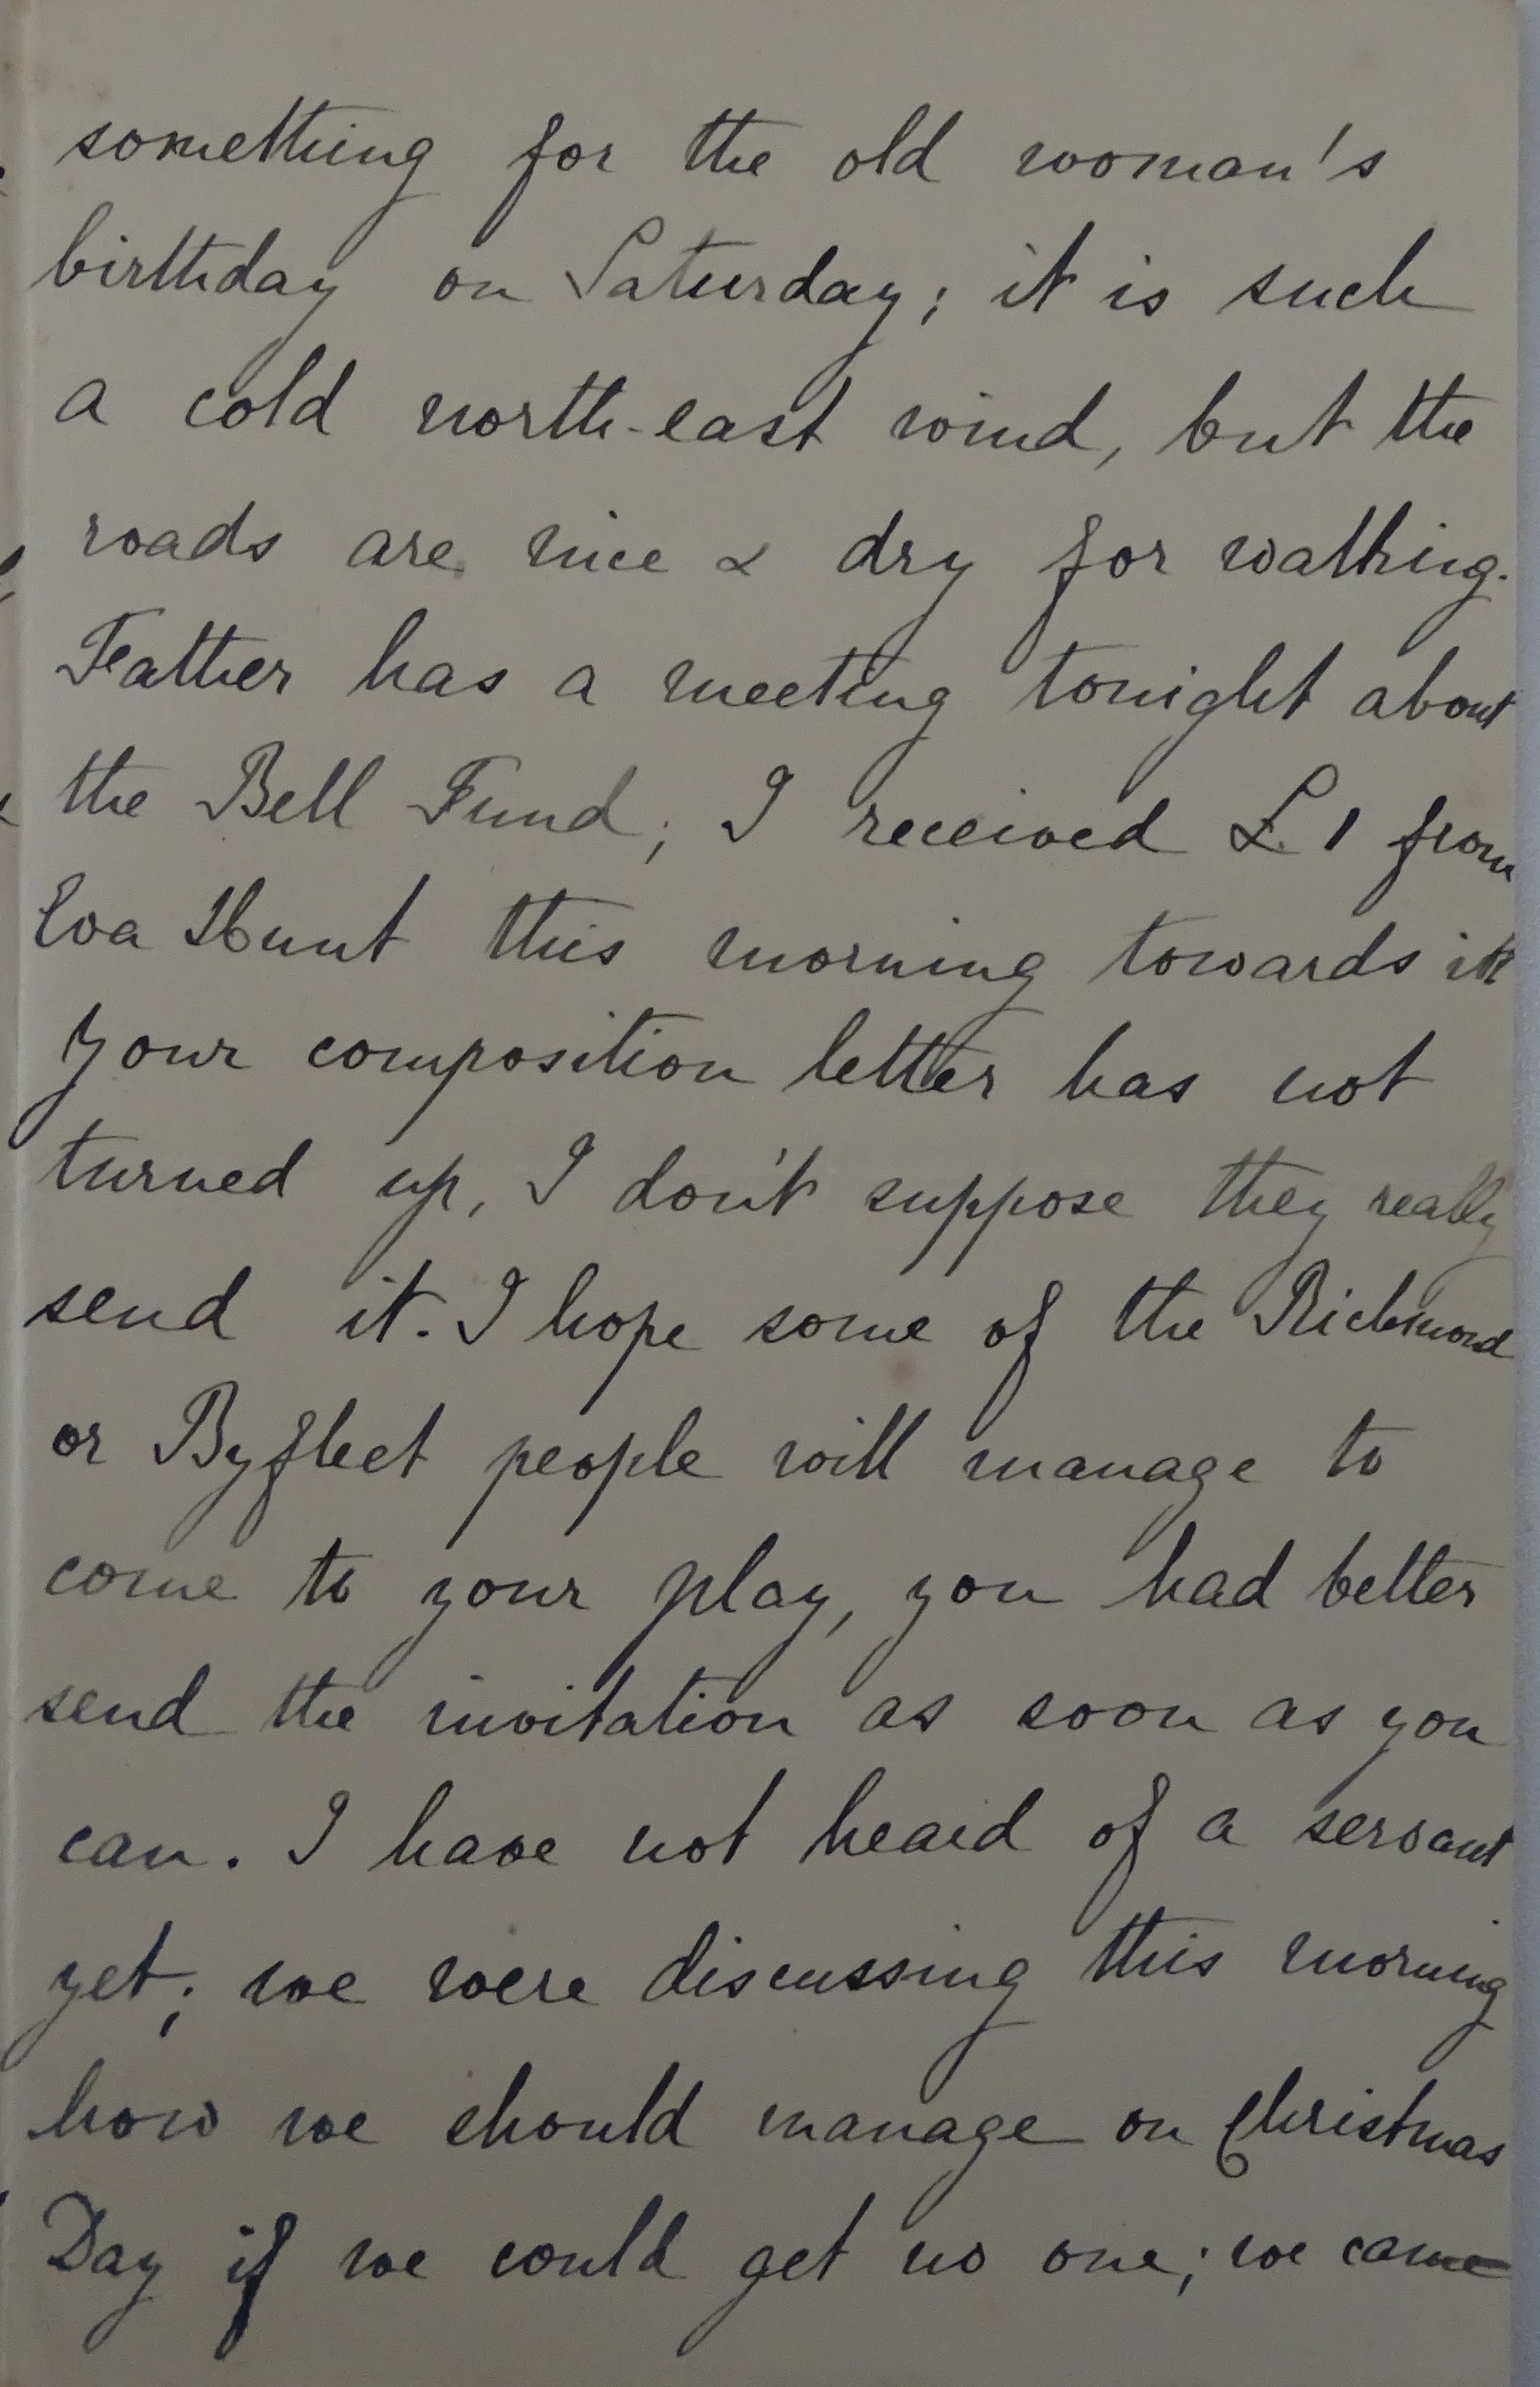 something for the old woman's
birthday on Saturday; it is such
a cold north-east wind, but the
roads are nice & dry for walking.
Father has a meeting tonight about
the Bell Fund; I received £1 from
Eva Hunt this morning towards it
Your composition letter has not
turned up, I don't suppose they really
send it. I hope some of the Richmond
or Byfleet people will manage to
come to your play, you had better
send the invitation as soon as you
can. I have not heard of a servant
yet; we were discussing this morning
how we should manage on Christmas
Day if we could get no one; we came